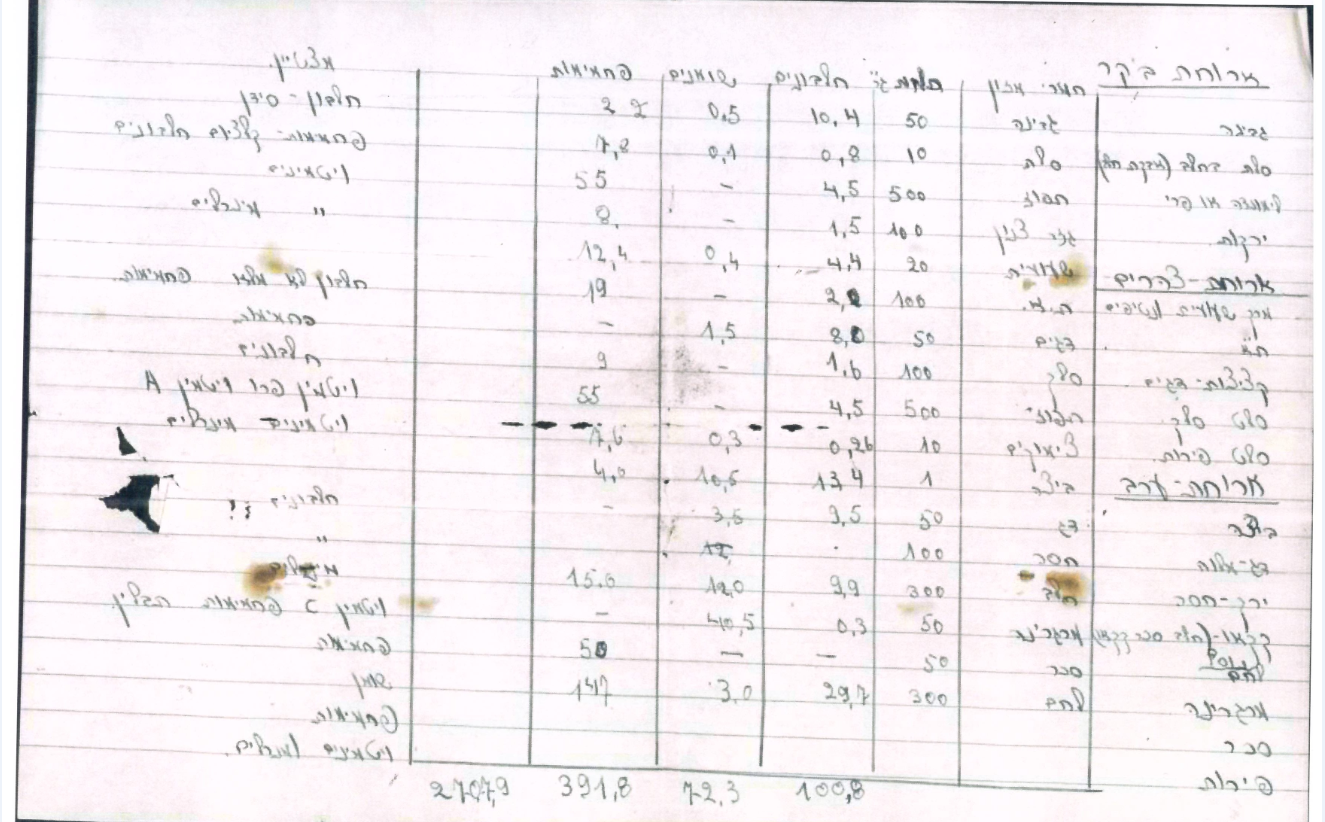 ארוחת בקר חמרי מזון כמות ג"ר חלבונים שומנים פחמימות מצטיין.
גבינה גבינה 50 10,4 0,5 2 2 חלבון - סידן
סלת בחלב (אבקת חלב) סלת 10 0,8 0,1 7,8 פחמימות - קלציום חלבונים
לימונדה או פרי תפוז 500 4,5 - 55 ויטמינים
ירקות. גזר צנון 100 1,5 - 8. " מינרלים
ארוחת-צהרים- שעועית 20 4,4 0,4 12,4
מרק שעועית ת.א. 100 2,0 - 19 חלבון לא מלא פחמימות.
ת"א דגים 50 8,0 1,5 - פחמימות
קציצות-דגים סלק 100 1,6 - 9 חלבונים
סלט סלק תפוז 500 4,5 - 55 ויטמין פרו ויטמין A
סלט פירות. צימוקים 10 0,26 0,3 7,6 ויטמינים מינרלים
ארוחת-ערב ביצה 1 13,4 10,5 4,0
ביצה דג 50 9,5 3,5 - חלבונים
דג-מלוח חסה 100 12, "
ירק-חסה חלב 300 9,9 12,0 15.0 מינרלים
קקאו-(חלב סכר קקאו) מרגרינה 50 0,3 40,5 - ויטמין C פחמימות תבלין
לחם סכר 50 — — 50 פחמימה
מרגרינה לחם 300 29,7 3.0 147 שומן
סכר פחמימות
פירות ויטמינים ומנרלים.
100,8 72,3 391,8 2707,9